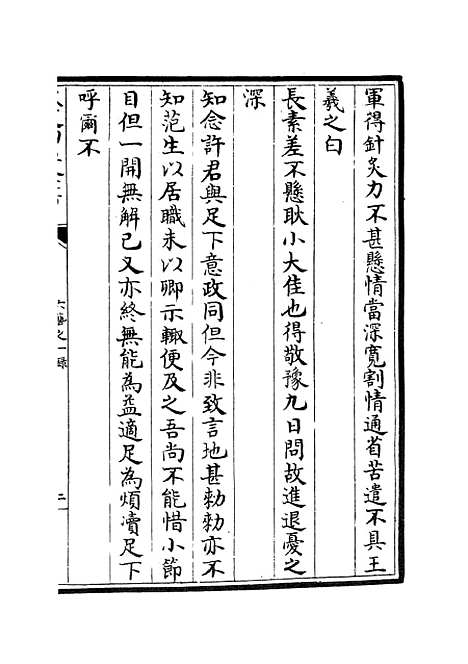 軍得針灸力不甚懸情當深寛割情通省苦遣不具王
羲之白
長素差不懸耿小大佳也得敬豫九日問故進退憂之
深
知念許君與足下意政同但今非致言地甚勅勅亦不
知范生以居職未以卿示輙便及之吾尚不能惜小節
目但一開無解已又亦終無能為益適足為煩瀆足下
呼爾不
六藝之一録
二